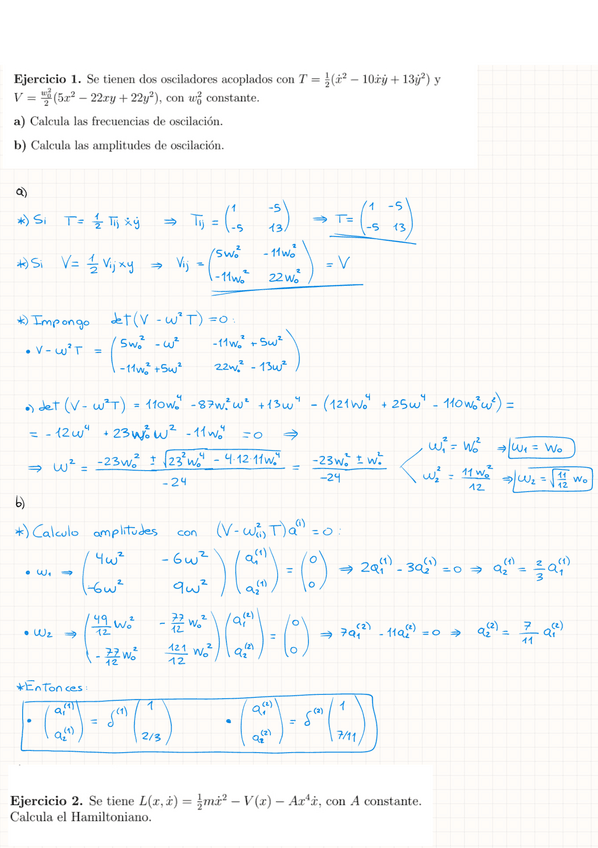 Ejercicio 1. Se tienen dos osciladores acoplados con T = ½(ẋ² − 10ẋẏ + 13ẏ²) y
V = w₀²/2 (5x² − 22xy + 22y²), con w₀² constante.
a) Calcula las frecuencias de oscilación.
b) Calcula las amplitudes de oscilación.
a)
*) Si T = ½ Tij ẋẏ ⇒ Tij = (1 -5; -5 13) ⇒ T = (1 -5; -5 13)
*) Si V = ½ Vij xy ⇒ Vij = (5w₀² -11w₀²; -11w₀² 22w₀²) = V
*) Impongo det(V - ω²T) = 0:
• V - ω²T = (5w₀² - ω² -11w₀² + 5ω²; -11w₀² + 5ω² 22w₀² - 13ω²)
•) det(V - ω²T) = 110w₀⁴ - 87w₀²ω² + 13ω⁴ - (121w₀⁴ + 25ω⁴ - 110w₀²ω²) =
= -12ω⁴ + 23w₀²ω² - 11w₀⁴ = 0 ⇒
⇒ ω² = (-23w₀² ± √(23²w₀⁴ - 4·12·11w₀⁴)) / -24 = (-23w₀² ± w₀²) / -24
ω₁² = w₀² ⇒ ω₁ = w₀
ω₂² = 11w₀²/12 ⇒ ω₂ = √(11/12) w₀
b)
*) Calculo amplitudes con (V - ω²(i) T) a⁽ⁱ⁾ = 0:
• ω₁ ⇒ (4ω² -6ω²; -6ω² 9ω²) (a₁⁽¹⁾; a₂⁽¹⁾) = (0; 0) ⇒ 2a₁⁽¹⁾ - 3a₂⁽¹⁾ = 0 ⇒ a₂⁽¹⁾ = 2/3 a₁⁽¹⁾
• ω₂ ⇒ (49/12 w₀² -77/12 w₀²; -77/12 w₀² 121/12 w₀²) (a₁⁽²⁾; a₂⁽²⁾) = (0; 0) ⇒ 7a₁⁽²⁾ - 11a₂⁽²⁾ = 0 ⇒ a₂⁽²⁾ = 7/11 a₁⁽²⁾
*Entonces:
• (a₁⁽¹⁾; a₂⁽¹⁾) = δ⁽¹⁾ (1; 2/3) • (a₁⁽²⁾; a₂⁽²⁾) = δ⁽²⁾ (1; 7/11)
Ejercicio 2. Se tiene L(x, ẋ) = ½mẋ² − V(x) − Ax⁴ẋ, con A constante.
Calcula el Hamiltoniano.